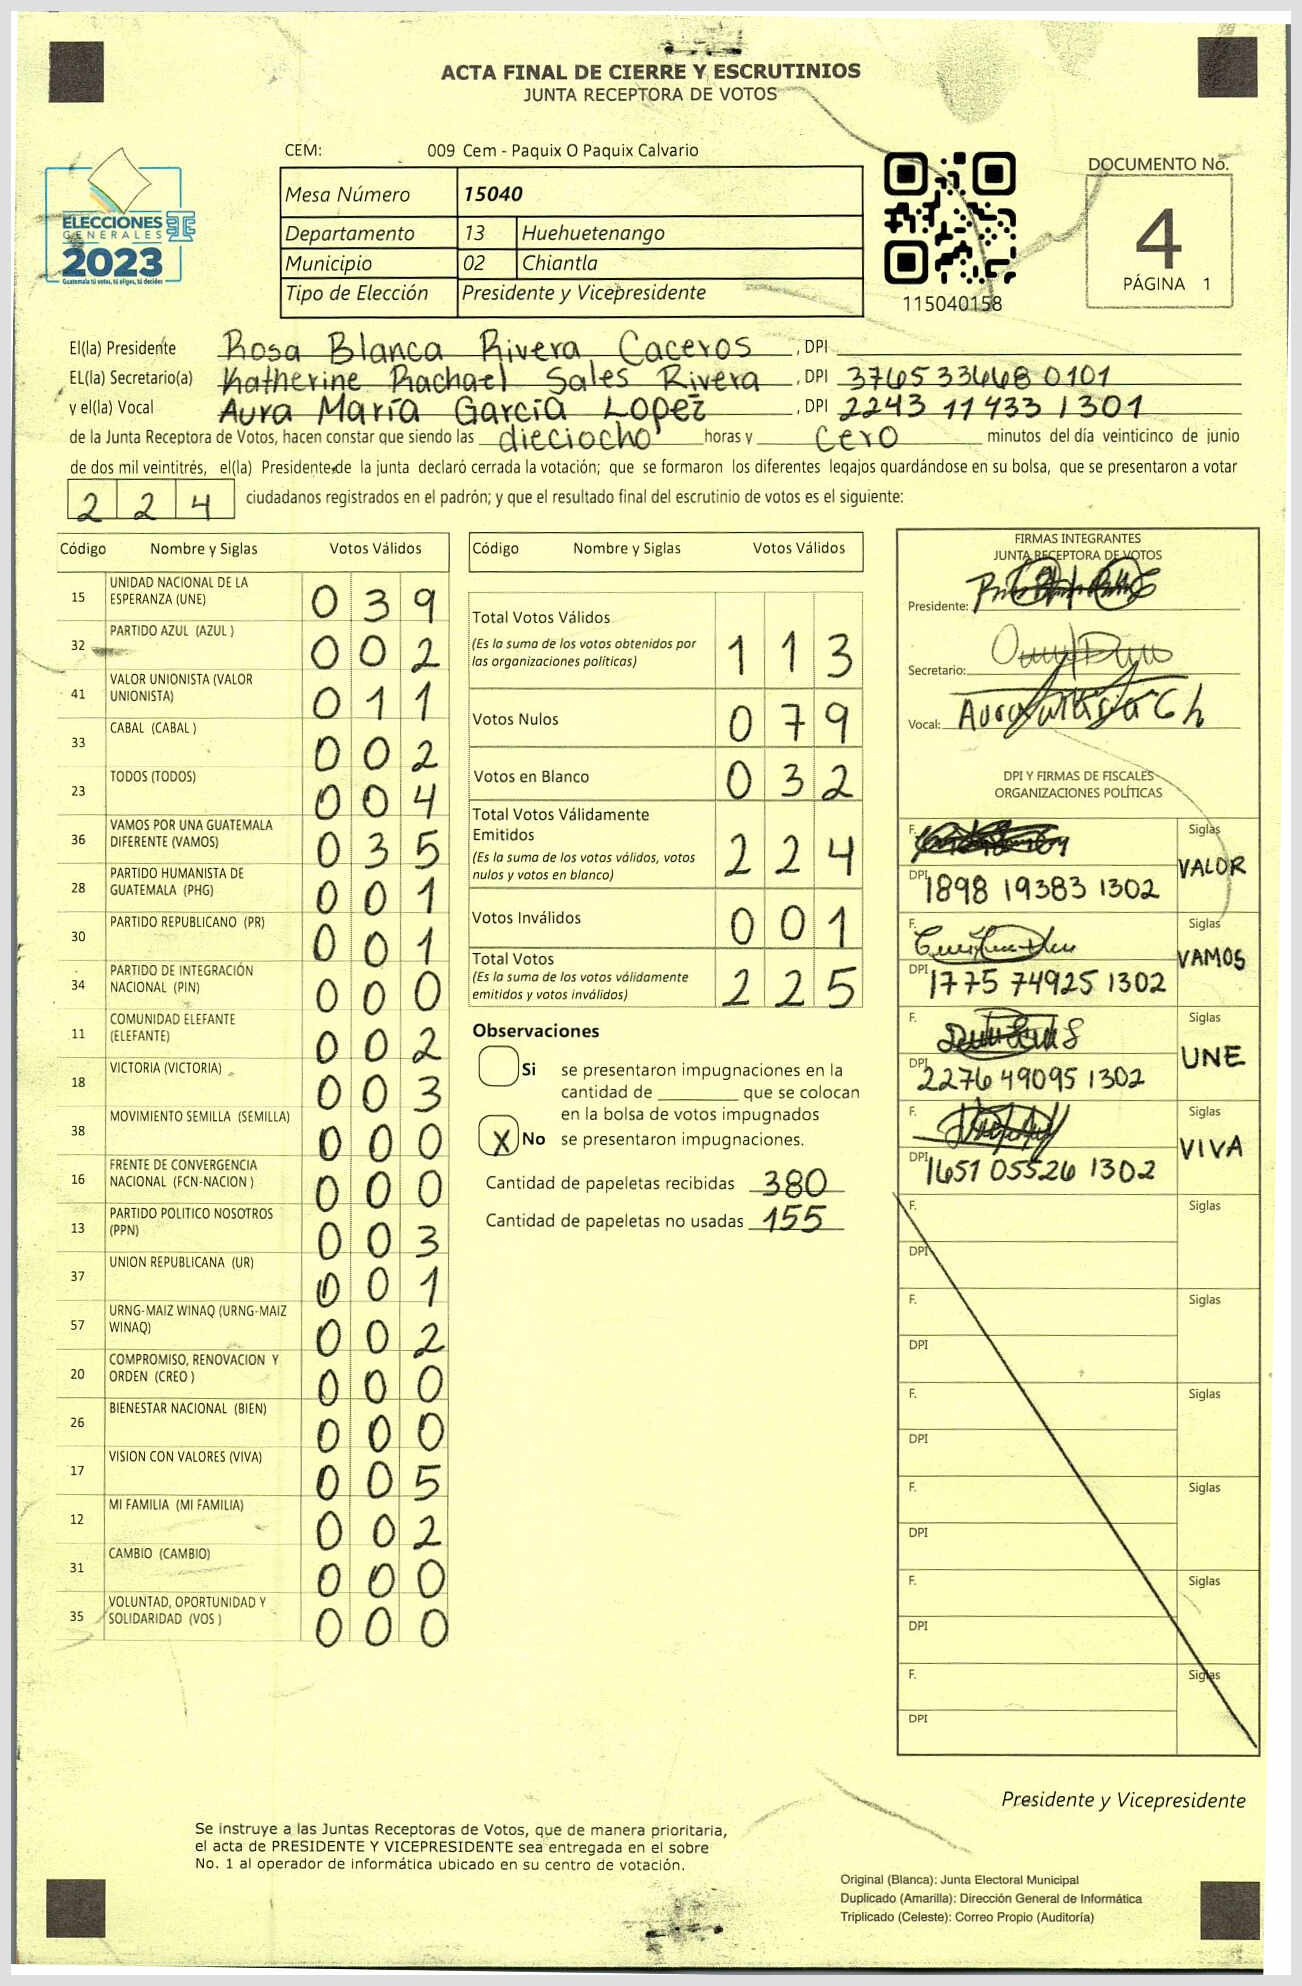 ACTA FINAL DE CIERRE Y ESCRUTINIOS
JUNTA RECEPTORA DE VOTOS
CEM: 009 Cem - Paquix O Paquix Calvario
ELECCIONES
GENERALES
2023
Guatemala tú votas, tú eliges, tú decides
Mesa Número 15040
Departamento 13 Huehuetenango
Municipio 02 Chiantla
Tipo de Elección Presidente y Vicepresidente
115040158
DOCUMENTO No.
4
PÁGINA 1
El(la) Presidente Rosa Blanca Rivera Caceros , DPI
EL(la) Secretario(a) Katherine Rachael Sales Rivera , DPI 3765 33668 0101
y el(la) Vocal Aura María García Lopez , DPI 2243 11433 1301
de la Junta Receptora de Votos, hacen constar que siendo las dieciocho horas y cero minutos del día veinticinco de junio
de dos mil veintitrés, el(la) Presidente de la junta declaró cerrada la votación; que se formaron los diferentes legajos quardándose en su bolsa, que se presentaron a votar
2 2 4 ciudadanos registrados en el padrón; y que el resultado final del escrutinio de votos es el siguiente:
Código Nombre y Siglas Votos Válidos
15 UNIDAD NACIONAL DE LA ESPERANZA (UNE) 0 3 9
32 PARTIDO AZUL (AZUL ) 0 0 2
41 VALOR UNIONISTA (VALOR UNIONISTA) 0 1 1
33 CABAL (CABAL ) 0 0 2
23 TODOS (TODOS) 0 0 4
36 VAMOS POR UNA GUATEMALA DIFERENTE (VAMOS) 0 3 5
28 PARTIDO HUMANISTA DE GUATEMALA (PHG) 0 0 1
30 PARTIDO REPUBLICANO (PR) 0 0 1
34 PARTIDO DE INTEGRACIÓN NACIONAL (PIN) 0 0 0
11 COMUNIDAD ELEFANTE (ELEFANTE) 0 0 2
18 VICTORIA (VICTORIA) 0 0 3
38 MOVIMIENTO SEMILLA (SEMILLA) 0 0 0
16 FRENTE DE CONVERGENCIA NACIONAL (FCN-NACION ) 0 0 0
13 PARTIDO POLITICO NOSOTROS (PPN) 0 0 3
37 UNION REPUBLICANA (UR) 0 0 1
57 URNG-MAIZ WINAQ (URNG-MAIZ WINAQ) 0 0 2
20 COMPROMISO, RENOVACION Y ORDEN (CREO ) 0 0 0
26 BIENESTAR NACIONAL (BIEN) 0 0 0
17 VISION CON VALORES (VIVA) 0 0 5
12 MI FAMILIA (MI FAMILIA) 0 0 2
31 CAMBIO (CAMBIO) 0 0 0
35 VOLUNTAD, OPORTUNIDAD Y SOLIDARIDAD (VOS ) 0 0 0
Código Nombre y Siglas Votos Válidos
Total Votos Válidos
(Es la suma de los votos obtenidos por
las organizaciones políticas) 1 1 3
Votos Nulos 0 7 9
Votos en Blanco 0 3 2
Total Votos Válidamente
Emitidos
(Es la suma de los votos válidos, votos
nulos y votos en blanco) 2 2 4
Votos Inválidos 0 0 1
Total Votos
(Es la suma de los votos válidamente
emitidos y votos inválidos) 2 2 5
Observaciones
Si se presentaron impugnaciones en la
cantidad de ________ que se colocan
en la bolsa de votos impugnados
X No se presentaron impugnaciones.
Cantidad de papeletas recibidas 380
Cantidad de papeletas no usadas 155
FIRMAS INTEGRANTES
JUNTA RECEPTORA DE VOTOS
Presidente:
Secretario:
Vocal:
DPI Y FIRMAS DE FISCALES
ORGANIZACIONES POLÍTICAS
F. Siglas
VALOR
DPI 1898 19383 1302
F. Siglas
VAMOS
DPI 1775 74925 1302
F. Siglas
UNE
DPI 2276 49095 1302
F. Siglas
VIVA
DPI 1651 05526 1302
F. Siglas
DPI
F. Siglas
DPI
F. Siglas
DPI
F. Siglas
DPI
F. Siglas
DPI
F. Siglas
DPI
Presidente y Vicepresidente
Se instruye a las Juntas Receptoras de Votos, que de manera prioritaria,
el acta de PRESIDENTE Y VICEPRESIDENTE sea entregada en el sobre
No. 1 al operador de informática ubicado en su centro de votación.
Original (Blanca): Junta Electoral Municipal
Duplicado (Amarilla): Dirección General de Informática
Triplicado (Celeste): Correo Propio (Auditoría)